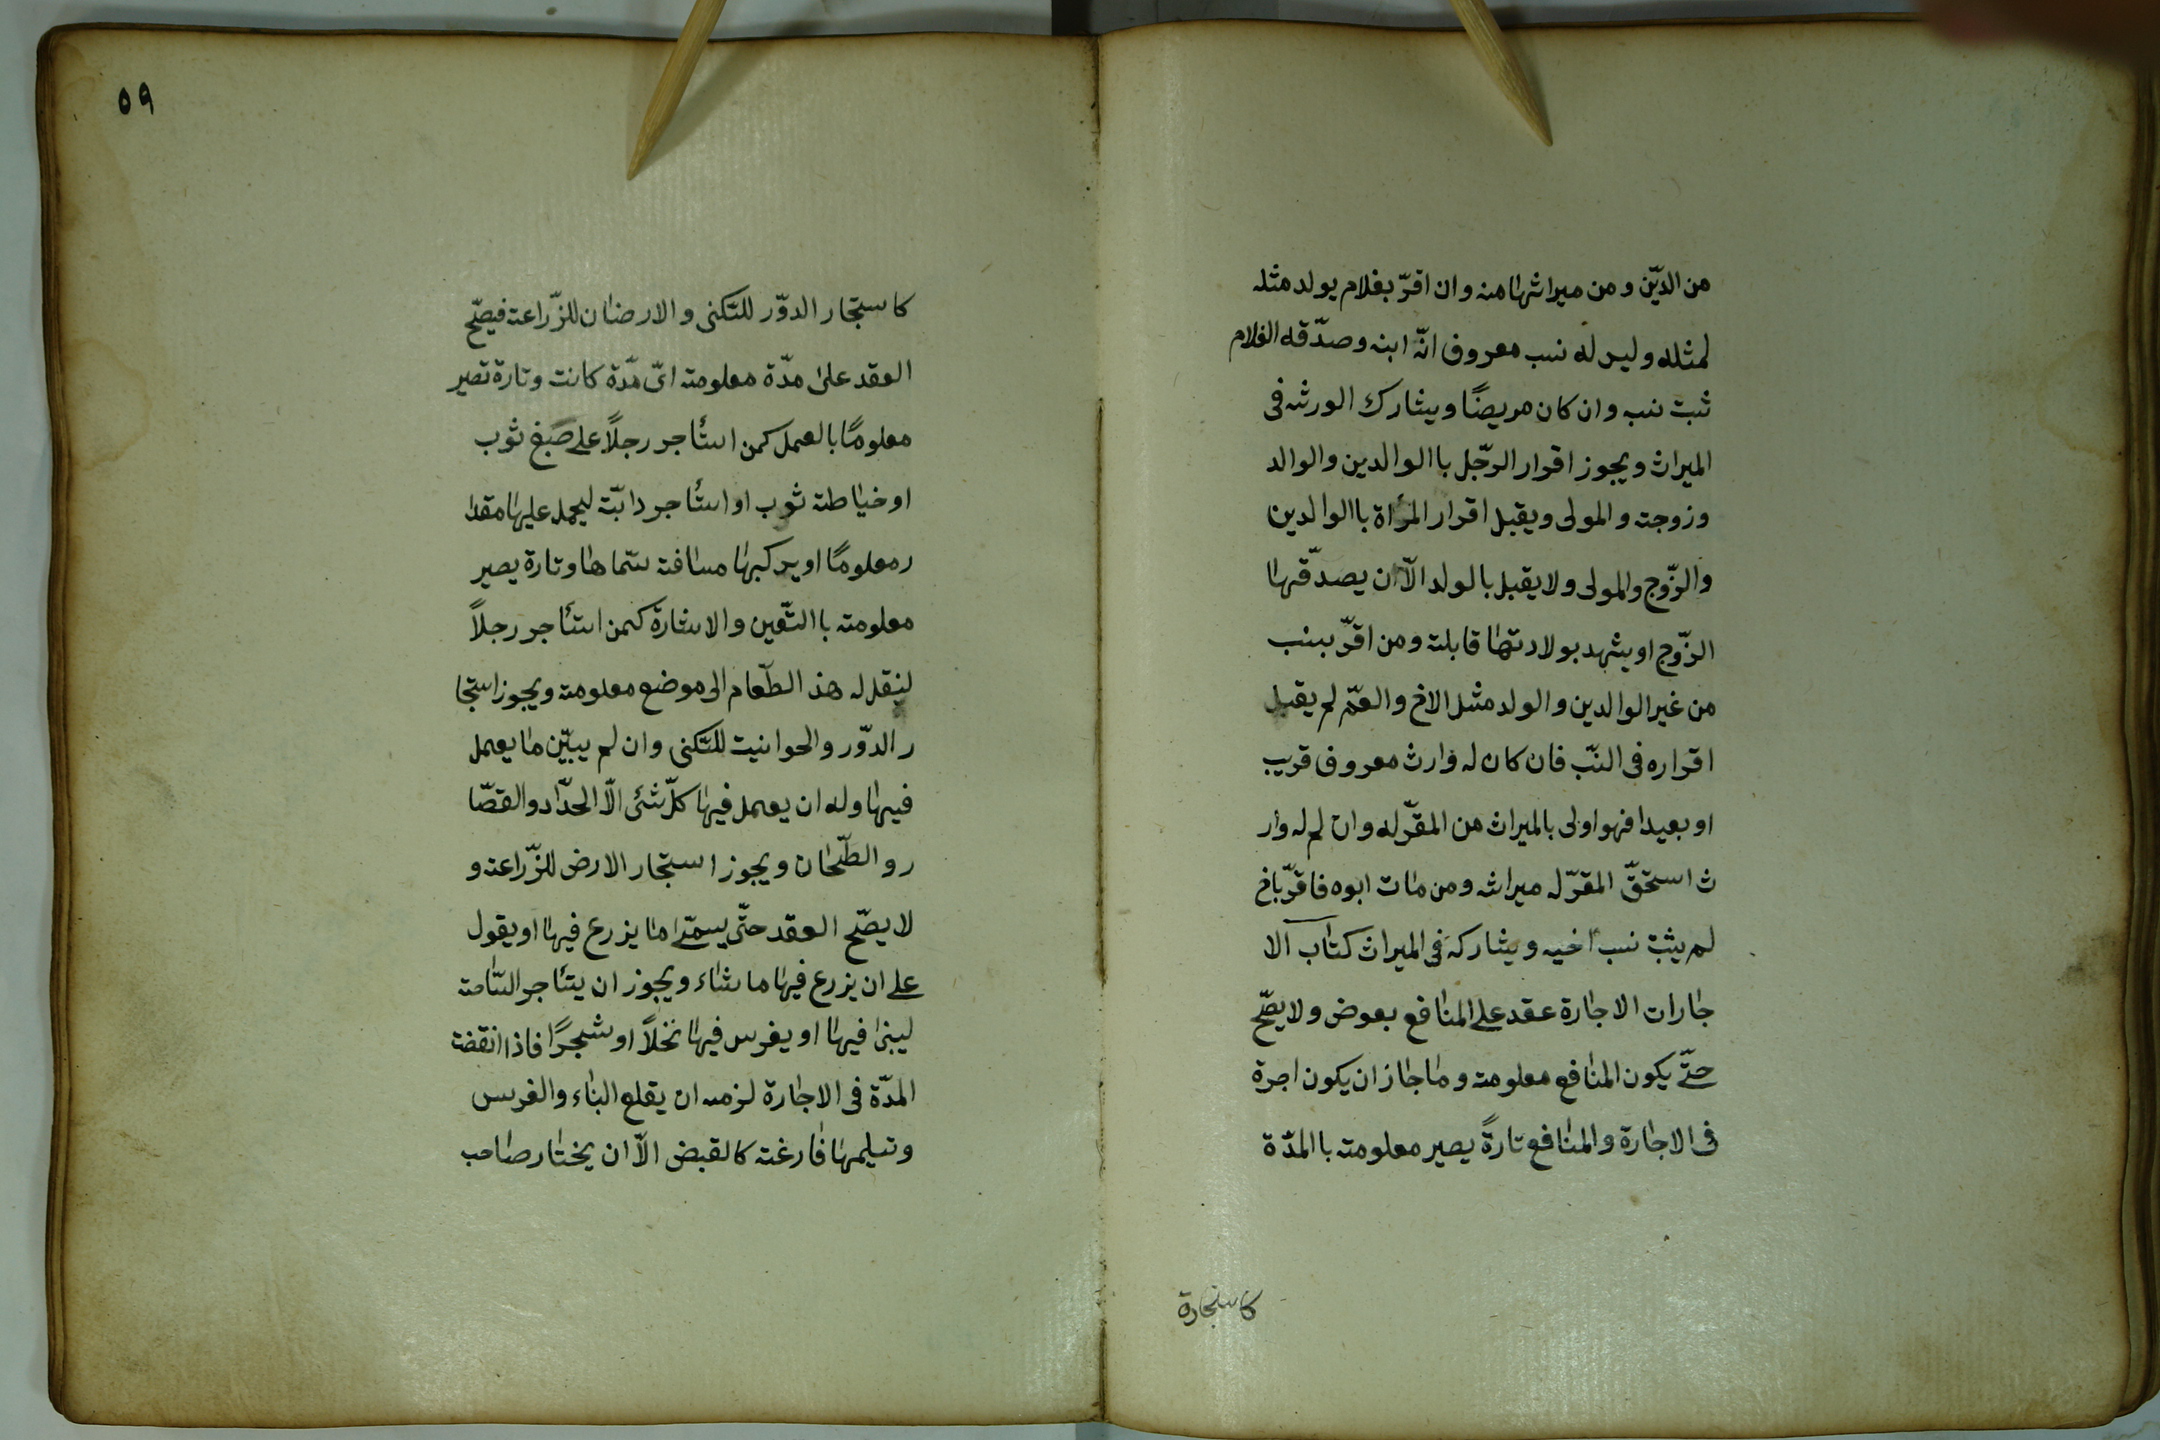 من الدّين و من ميراثها منه وان اقرّ بغلام يولد مثله
لمثله وليس له نسب معروف انّه ابنه وصدّقه الغلام
ثبت نسب وان كان مريضًا ويشارك الورثه فى
الميراث ويجوز اقرار الرّجل باالوالدين والوالد
وزوجته والمولى ويقبل اقرار المرأة باالوالدين
والزّوج والمولى ولا يقبل بالولد الاّ ان يصدّقها
الزّوج او يشهد بولادتها قابلة ومن اقرّ بنسب
من غير الوالدين والولد مثل الاخ والعمّ لم يقبل
اقراره فى النّسب فان كان له وارث معروف قريب
او بعيدا فهو اولى بالميراث من المقرّ له وان لم له وار
ث استحقّ المقرّ له ميراثه ومن مات ابوه فاقرّ باخ
لم يثبت نسب اخيه ويشاركه فى الميراث كتاب الا
جارات الاجارة عقد على المنافع بعوض ولا يصّح
حتّى يكون المنافع معلومة وما جاز ان يكون اجرة
فى الاجارة والمنافع تارةً يصير معلومته باالمدّة
كاستجارة
٥٩
كاستجار الدوّر للسّكنى والارضان للزّراعة فيصّح
العقد على مدّة معلومته اىّ مدّة كانت وتارة تصير
معلومًا بالعمل كمن استأجر رجلاً على صبغ ثوب
او خياطة ثوب او استأجر دابّة ليحمل عليها مقدا
ر معلومًا او يركبها مسافة سمّاها وتارة يصير
معلومته باالتّعين والاشارة كمن استأجر رجلاً
لينقل له هذ الطّعام الى موضع معلومة ويجوز استجا
ر الدوّر والحوانيت للسّكنى وان لم يبيّن ما يعمل
فيها وله ان يعمل فيها كلّ شئى الاّ الحدّاد والقصّا
ر والطّحان ويجوز استجار الارض للزّراعة و
لا يصّح العقد حتّى يسمّى ما يزرع فيها او يقول
على ان يزرع فيها ما شاء ويجوز ان يستأجر السّاحة
ليبنى فيها او يغرس فيها نخلاً او شجرًا فاذا انقضت
المدّة فى الاجارة لزمه ان يقلع البناء والغرس
وتسليمها فارغة كالقبض الاّ ان يختار صاحب